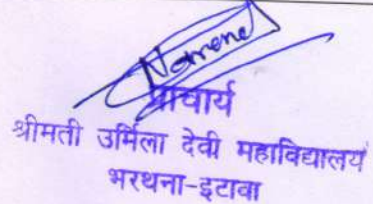 प्राचार्य
श्रीमती उर्मिला देवी महाविद्यालय
भरथना-इटावा